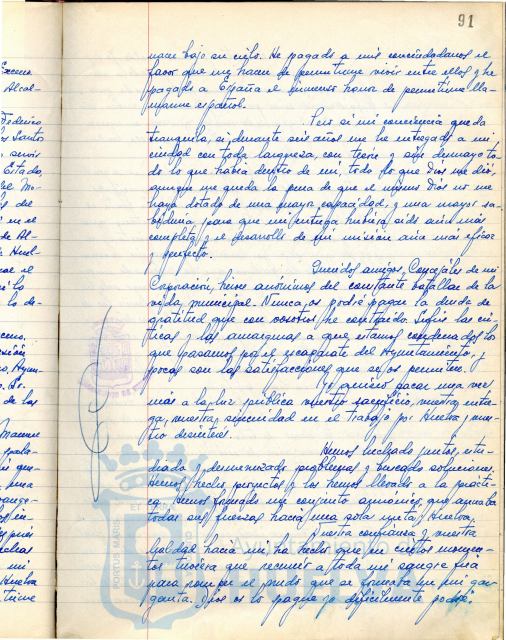 91
nacer bajo su cielo. He pagado a mis conciudadanos el
favor que me hacen de permitirme vivir entre ellos y he
pagado a España el inmenso honor de permitirme lla-
marme español.
Pero si mi conciencia queda
tranquila, si durante seis años me he entregado a mi
ciudad con toda largueza, con tesón y sin desmayo to-
do lo que había dentro de mí, todo lo que Dios me dió,
aunque me queda la pena de que el mismo Dios no me
haya dotado de una mayor capacidad, y una mayor sa-
biduría para que mi entrega hubiera sido aún más
completa y el desarrollo de mi misión aún más eficaz
y perfecto.
Queridos amigos, Concejales de mi
Corporación, héroes anónimos del constante batallar de la
vida municipal. Nunca os podré pagar la deuda de
gratitud que con vosotros he contraido. Sufrir las crí-
ticas y las amarguras a que estamos condenados los
que pasamos por el escaparate del Ayuntamiento, y
pocas son las satisfacciones que se os permiten.
Yo quiero sacar una vez
más a la luz pública vuestro sacrificio, vuestra entre-
ga, vuestra sinceridad en el trabajo por Huelva, vues-
tro desinterés.
Hemos luchado juntos, estu-
diado y desmenuzado problemas y buscado soluciones.
Hemos hecho proyectos y los hemos llevado a la prácti-
ca. Hemos formado un conjunto armónico que aunaba
todas sus fuerzas hacia una sola meta, Huelva.
Vuestra confianza y vuestra
lealdad hacia mi, ha hecho que en ciertos momen-
tos tuviera que recurrir a toda mi sangre fría
para romper el nudo que se formaba en mi gar-
ganta. Dios os lo pague yo dificilmente podré.
PORTUS MARIS